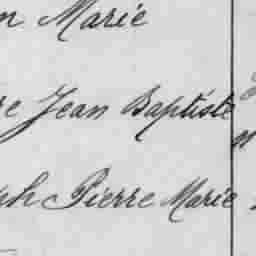 n Marie
re Jean Baptiste
ph Pierre Marie